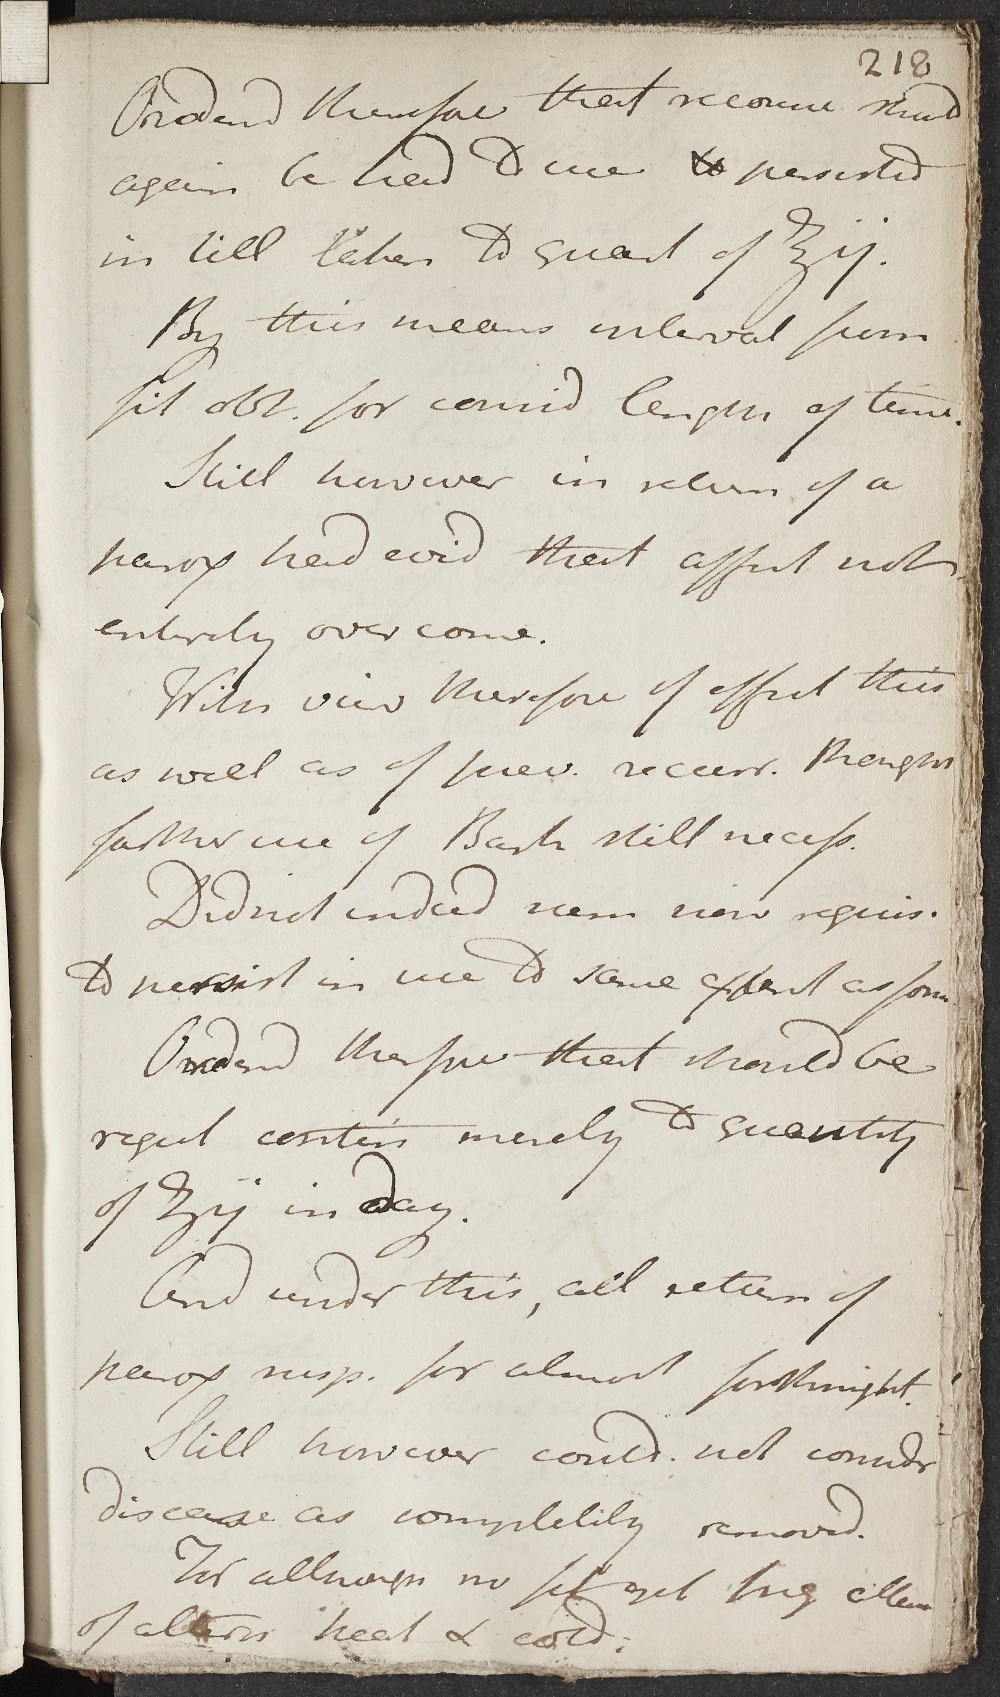 218
Ordered therefore that recourse should
again be had to use & persisted
in till taken to quant of ℥ij.
By this means interval from
fit obt. for consid length of time.
Still however in return of a
parox had evid that affect not
entirely overcome.
With view therefore of effect this
as well as of prev. recurr. thought
farther use of Bark still necess.
Did not indeed seem now requis.
to persist in use to same extent as form
Ordered therefore that should be
regul contin merely to quantity
of ℥ij in day.
And under this, all return of
parox susp. for almost forthnight.
Still however could. not consider
disease as completely removed.
For although no fit yet freq attac
of altern heat & cold.